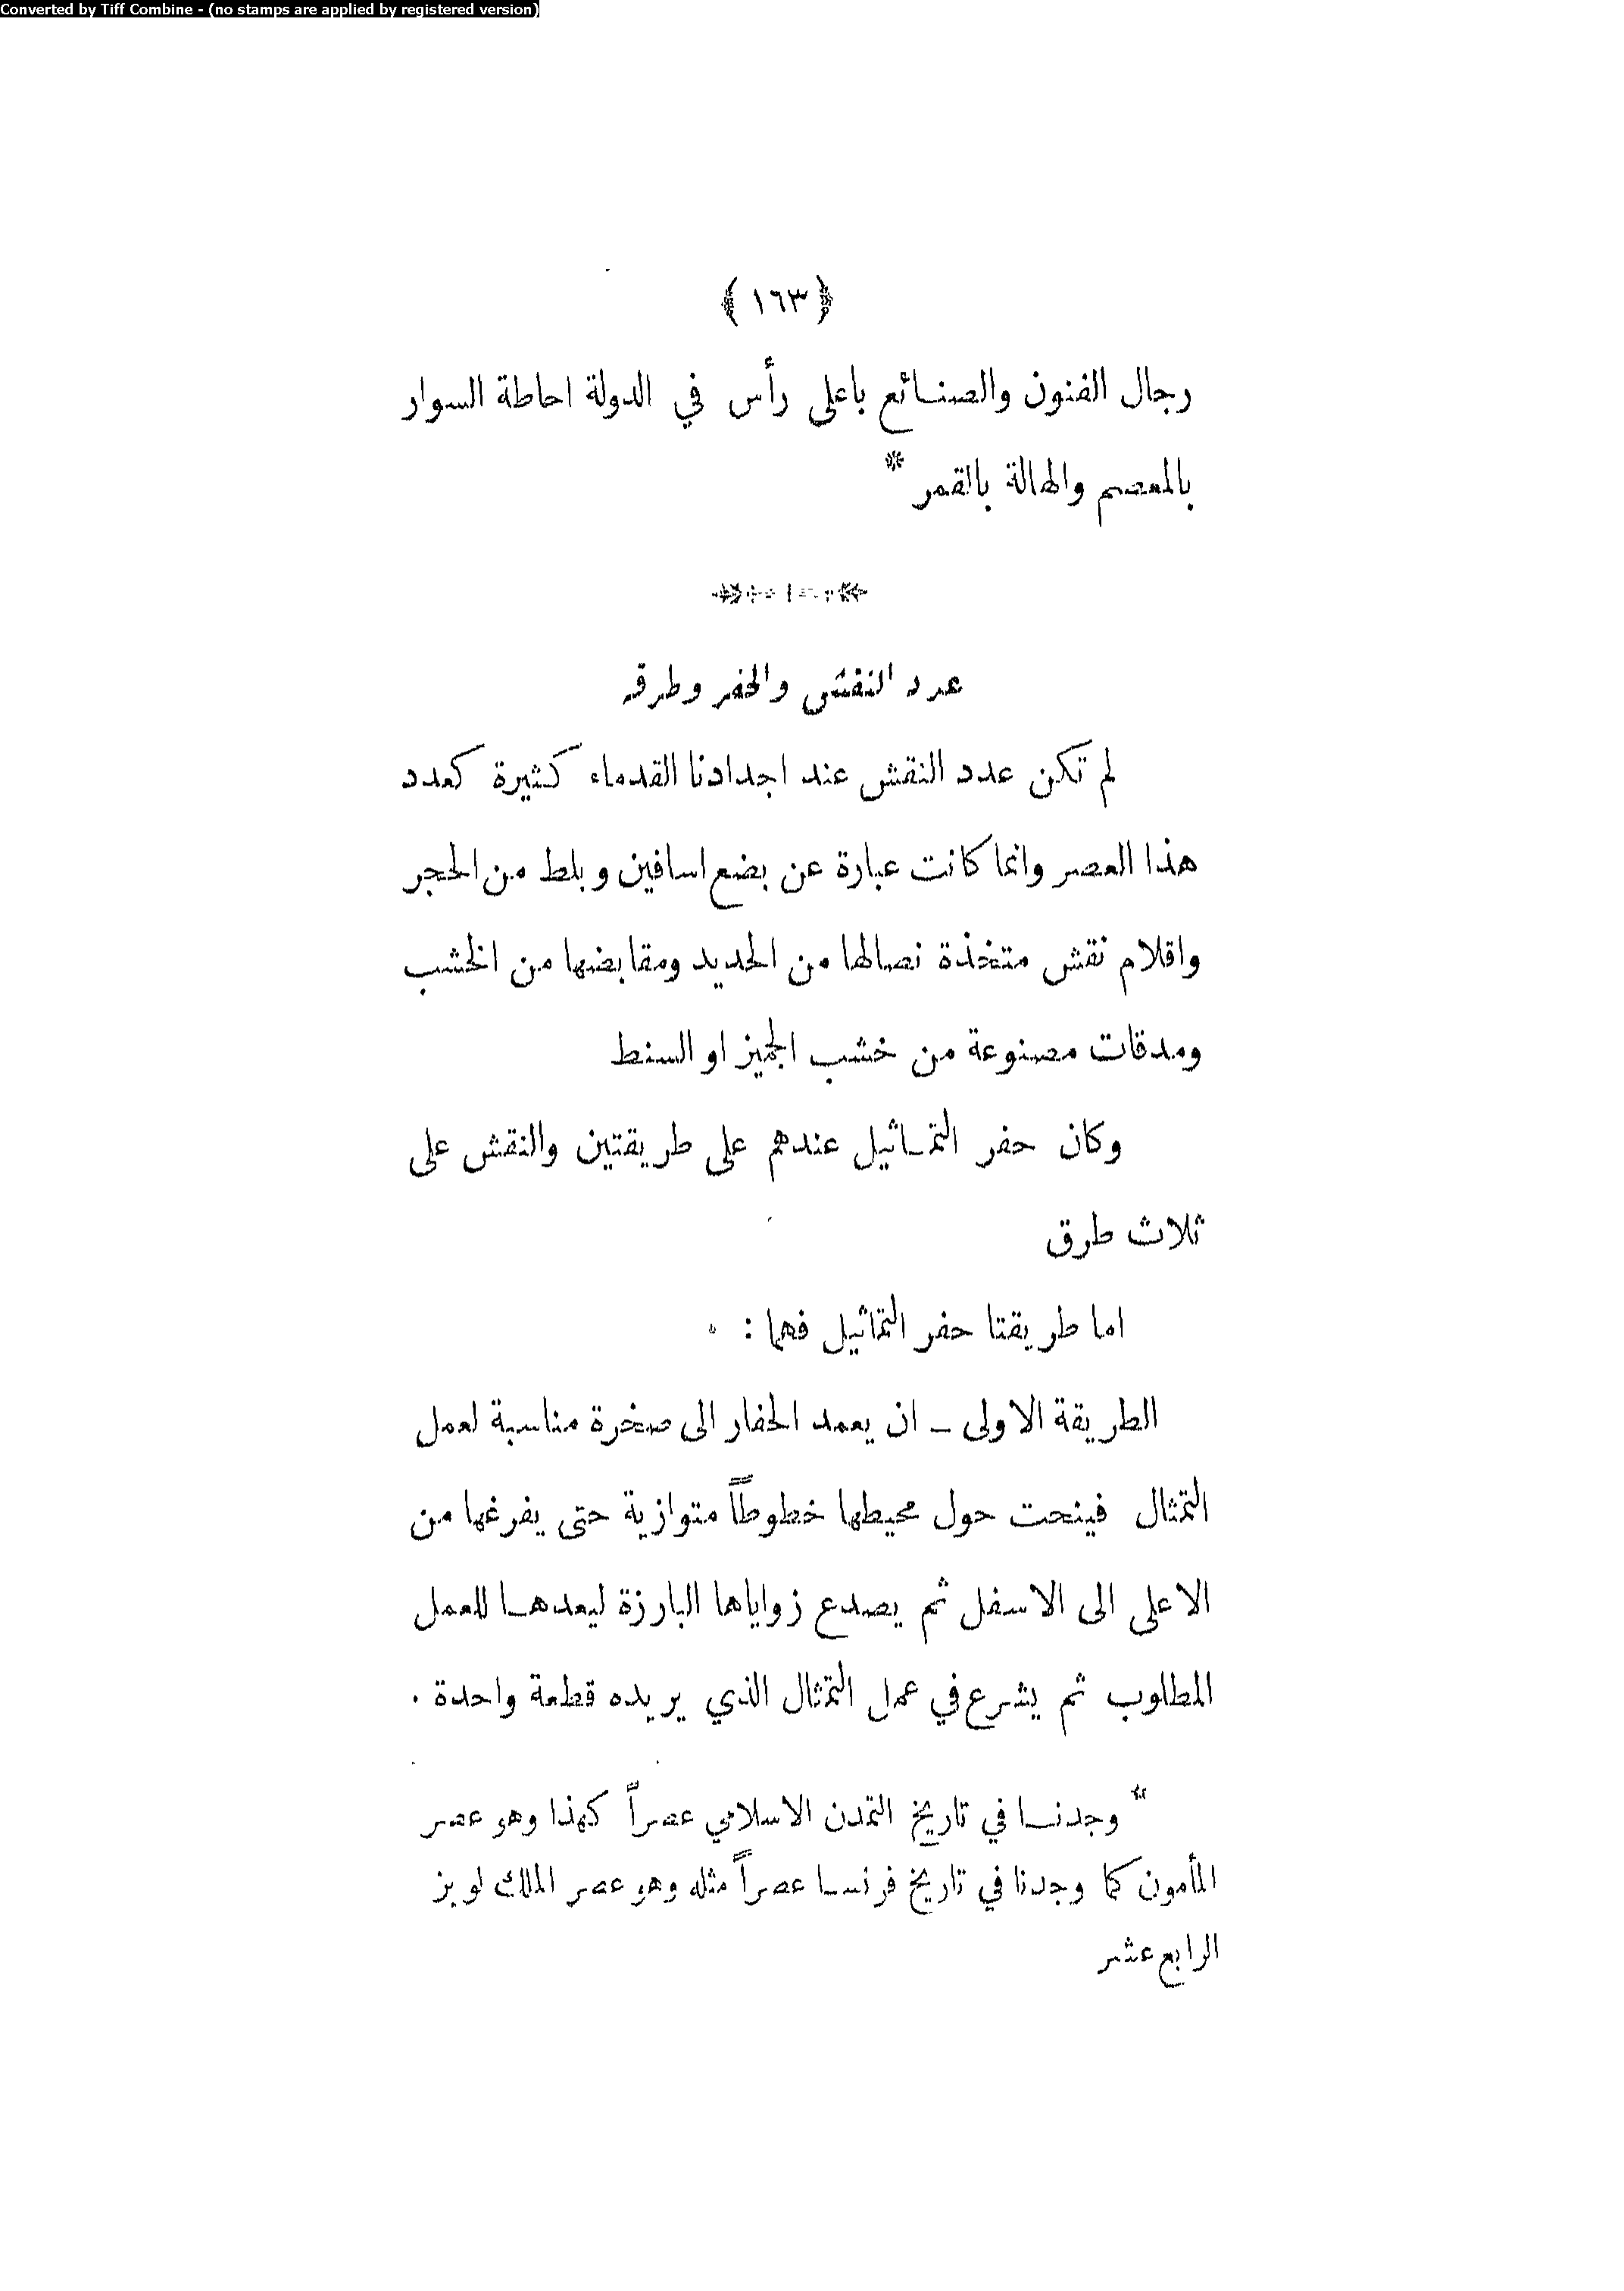 Converted by Tiff Combine - (no stamps are applied by registered version)
﴿١٦٣﴾
رجال الفنون والصنائع باعلى رأس في الدولة احاطة السوار
بالمعصم والهالة بالقمر *
عدد النقش والحفر وطرقه
لم تكن عدد النقش عند اجدادنا القدماء كثيرة كعدد
هذا العصر وانما كانت عبارة عن بضع اسافين وبلط من الحجر
واقلام نقش متخذة نصالها من الحديد ومقابضها من الخشب
ومدقات مصنوعة من خشب الجميز او السنط
وكان حفر التماثيل عندهم على طريقتين والنقش على
ثلاث طرق
اما طريقتا حفر التماثيل فهما :
الطريقة الاولى – ان يعمد الحفار الى صخرة مناسبة لعمل
التمثال فينحت حول محيطها خطوطاً متوازية حتى يفرغها من
الاعلى الى الاسفل ثم يصدع زواياها البارزة ليعدها للعمل
المطلوب ثم يشرع في عمل التمثال الذي يريده قطعة واحدة .
* وجدنا في تاريخ التمدن الاسلامي عصراً كهذا وهو عصر
المأمون كما وجدنا في تاريخ فرنسا عصراً مثله وهو عصر الملك لويز
الرابع عشر